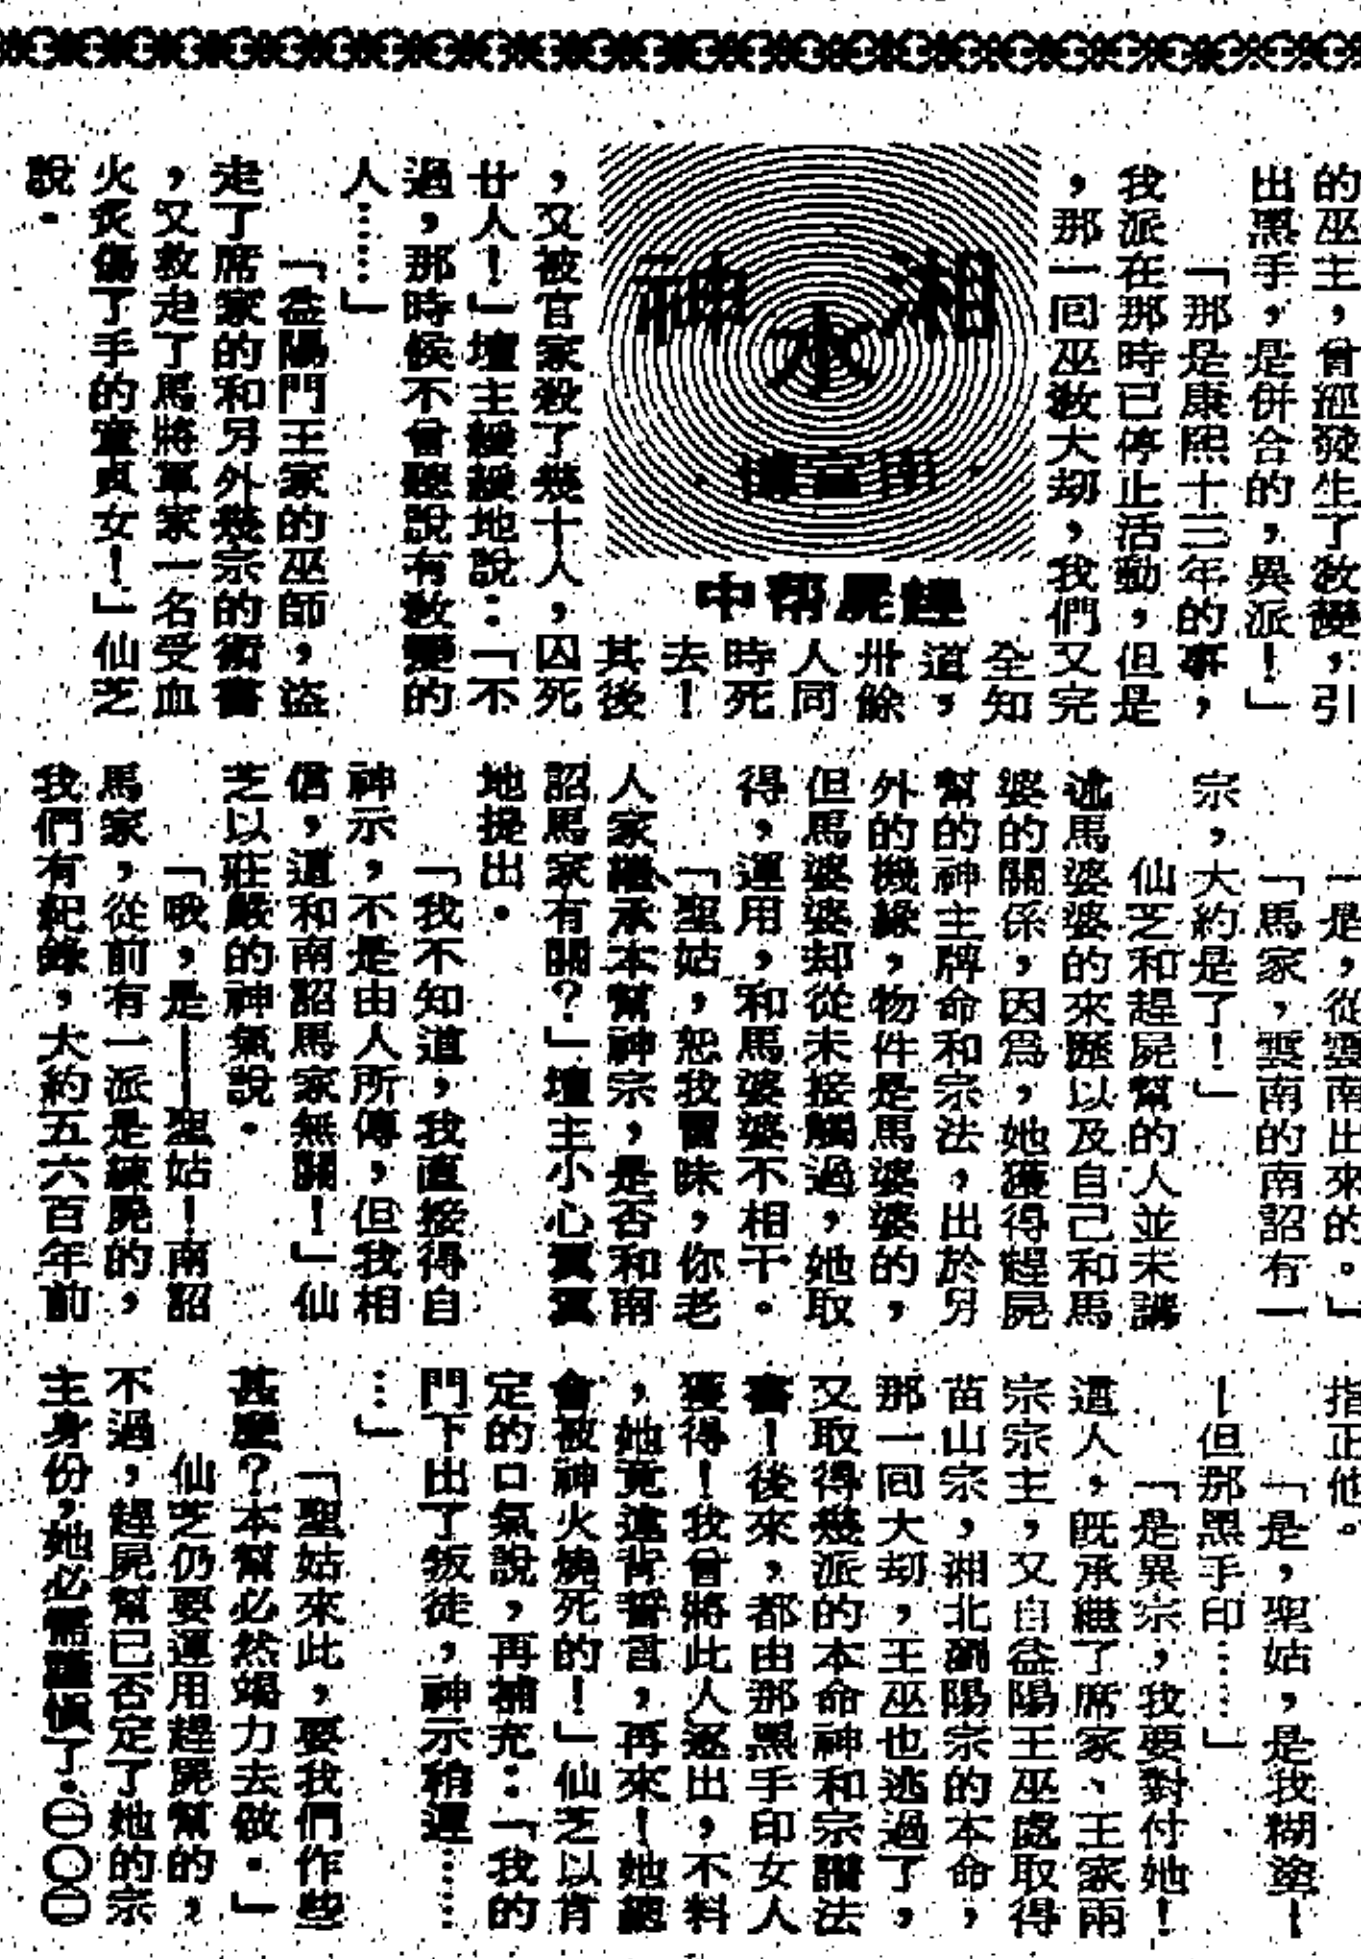 的巫主，曾經發生了教變，引
出黑手，是併合的，異派！」
「那是康熙十三年的事，
我派在那時已停止活動，但是
，那一回巫教大刧，我們又完
全知
道，
卅餘
人同
時死
去！
其後
湘水神
南宮博
趕屍幫中
，又被官家殺了幾十人，囚死
廿人！」壇主緩緩地說：「不
過，那時候不曾聽說有教變的
人……」
「益陽門王家的巫師，盜
走了席家的和另外幾宗的術書
，又救走了馬將軍家一名受血
火炙傷了手的童貞女！」仙芝
說。
一是，從雲南出來的。」
「馬家，雲南的南詔有一
宗，大約是了！」
仙芝和趕屍幫的人並未講
述馬婆婆的來歷以及自己和馬
婆的關係，因爲，她獲得趕屍
幫的神主牌命和宗法，出於另
外的機緣，物件是馬婆婆的，
但馬婆婆却從未接觸過，她取
得，運用，和馬婆婆不相干。
「聖姑，恕我冒昧，你老
人家繼承本幫神宗，是否和南
詔馬家有關？」壇主小心翼翼
地提出。
「我不知道，我直接得自
神示，不是由人所傳，但我相
信，道和南詔馬家無關！」仙
芝以莊嚴的神氣說。
「哦，是——聖姑！南詔
馬家，從前有一派是練屍的，
我們有紀錄，大約五六百年前
指正他。
「是，聖姑，是我糊塗—
—但那黑手印……」
「是異宗，我要對付她！
這人，旣承繼了席家、王家兩
宗宗主，又自益陽王巫處取得
苗山宗，湘北瀏陽宗的本命，
那一回大刧，王巫也逃過了，
又取得幾派的本命神和宗譜法
書！後來，都由那黑手印女人
獲得！我曾將此人逐出，不料
，她竟違背誓言，再來！她總
會被神火燒死的！」仙芝以肯
定的口氣說，再補充：「我的
門下出了叛徒，神示稍遲……
…」
「聖姑來此，要我們作些
甚麼？本幫必然竭力去做。」
仙芝仍要運用趕屍幫的，
不過，趕屍幫已否定了她的宗
主身份，她必需謹愼了。㊀〇〇㊁